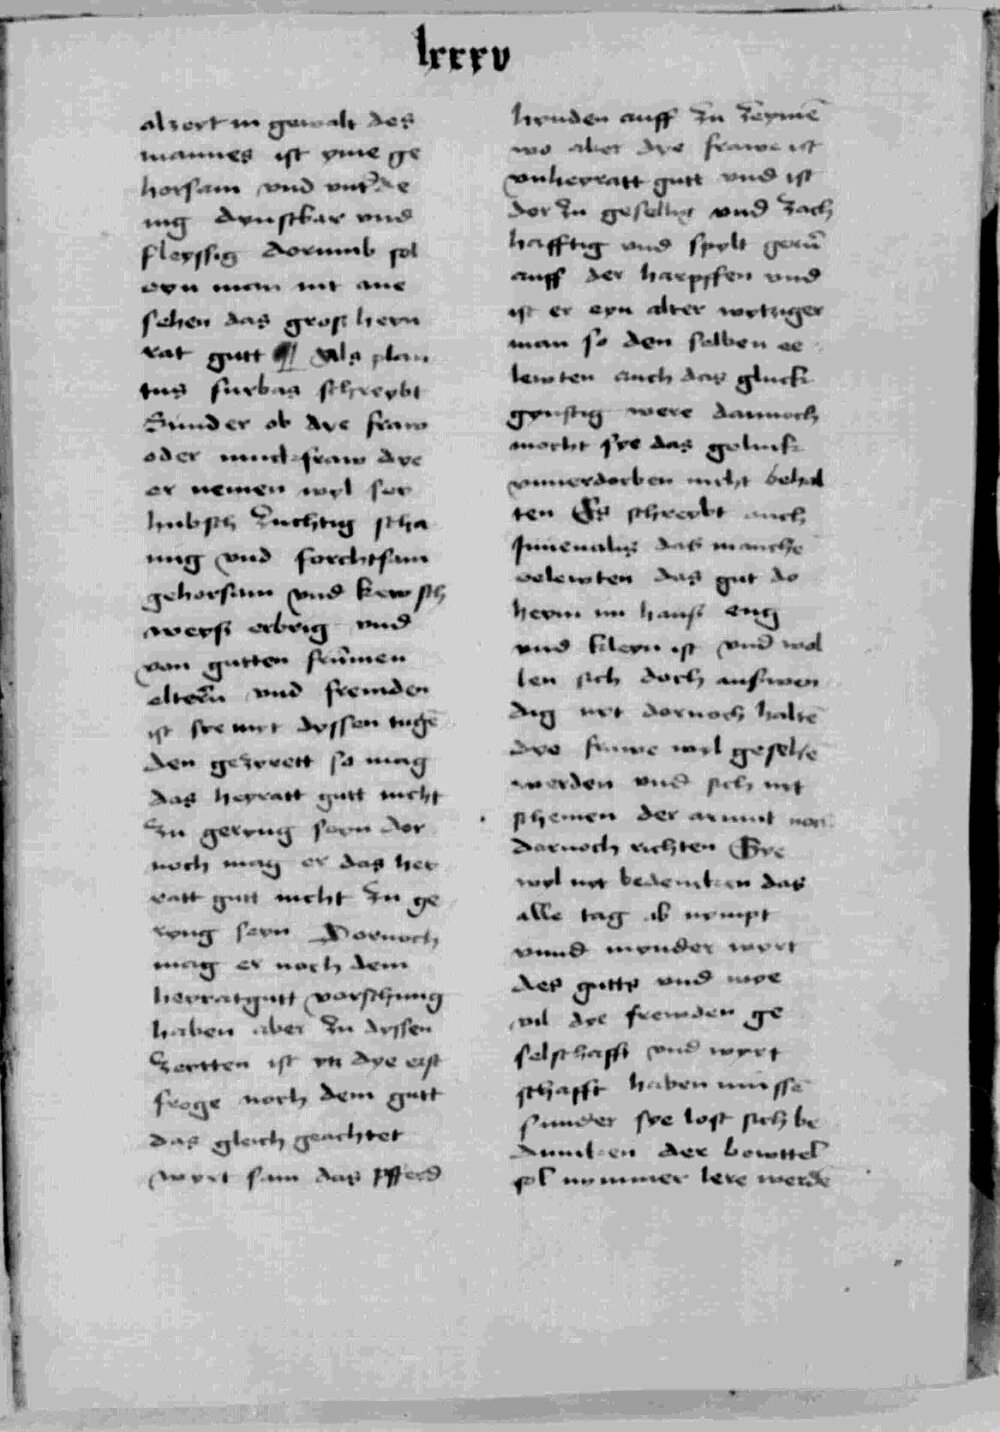 lxxxv
alzort in gewalt des
mannes ist yme ge
horsam vnd vnt'de
nig dynstbar vnd
fleyssig dorumb sol
eyn man nit ane
sehen das gross heyn
rat gutt ¶ Als plau
tus furbas schreybt
Sunder ob dye fraw
oder iunckfraw dye
er nemen wyl sey
hubsch zuchtig scha
mig vnd forchtsam
gehorsam vnd kewsch
weyss erbrig vnd
von gutten frummen
elterñ vnd fremden
ist sye myt dyssen tugē
den gezyrett so mag
das heyratt gutt nicht
zu geryng seyn dor
noch mag er das hey
ratt gutt nicht zu ge
ryng seyn Dornoch
mag er noch dem
heyratgutt vorschung
haben aber zu dyssen
zeytten ist yn dye erst
froge noch dem gutt
das gleich geachtet
wyrt sam das pfferd
hynden auff zu zeymē
wo aber dye frawe ist
vnheyratt gutt vnd ist
dor zu gesellig vnd zach
hafftig vnd spylt gerñ
auff der harpffen vnd
ist er eyn alter wytziger
man so den selben ee
lewten auch das gluck
gynstig were dannoch
mocht sye das geluck
vnuerdorben nicht behal
ten Es schreybt auch
Juuenalis das manche
eelewten das gut do
heym im hauss eng
vnd kleyn ist vnd wol
len sich doch ausswen
dig nyt dornoch haltē
dye frawe wyl geselle
werden vnd sich nyt
schemen der armut noch
darnoch richten Sye
wyl nyt bedencken das
alle tag ab nympt
vnnd mynder wyrt
des gutts vnd wye
vil dye fremden ge
selschafft vnd wyrt
schafft haben mussē
sunder sye lost sich be
duncken der bewttel
sol nymmer lere werdē